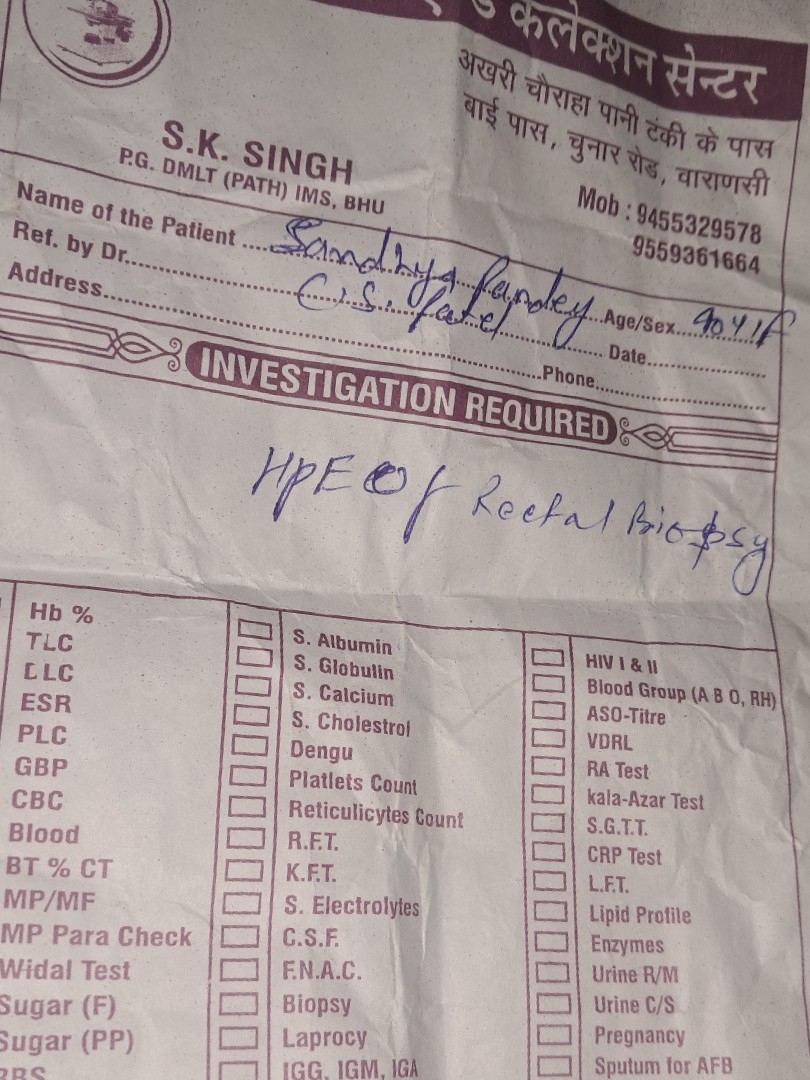 कलेक्शन सेन्टर
अखरी चौराहा पानी टंकी के पास
बाई पास, चुनार रोड, वाराणसी
Mob : 9455329578
9559361664
S.K. SINGH
P.G. DMLT (PATH) IMS, BHU
Name of the Patient Sandhya Pandey Age/Sex
Ref. by Dr. C.S. Patel Date
Address Phone
INVESTIGATION REQUIRED
HPE Of Rectal Biopsy
Hb %
TLC
DLC
ESR
PLC
GBP
CBC
Blood
BT % CT
MP/MF
MP Para Check
Widal Test
Sugar (F)
Sugar (PP)
RBS
S. Albumin
S. Globulin
S. Calcium
S. Cholestrol
Dengu
Platlets Count
Reticulicytes Count
R.F.T.
K.F.T.
S. Electrolytes
C.S.F.
F.N.A.C.
Biopsy
Laprocy
IGG, IGM, IGA
HIV I & II
Blood Group (A B O, RH)
ASO-Titre
VDRL
RA Test
kala-Azar Test
S.G.T.T.
CRP Test
L.F.T.
Lipid Profile
Enzymes
Urine R/M
Urine C/S
Pregnancy
Sputum for AFB